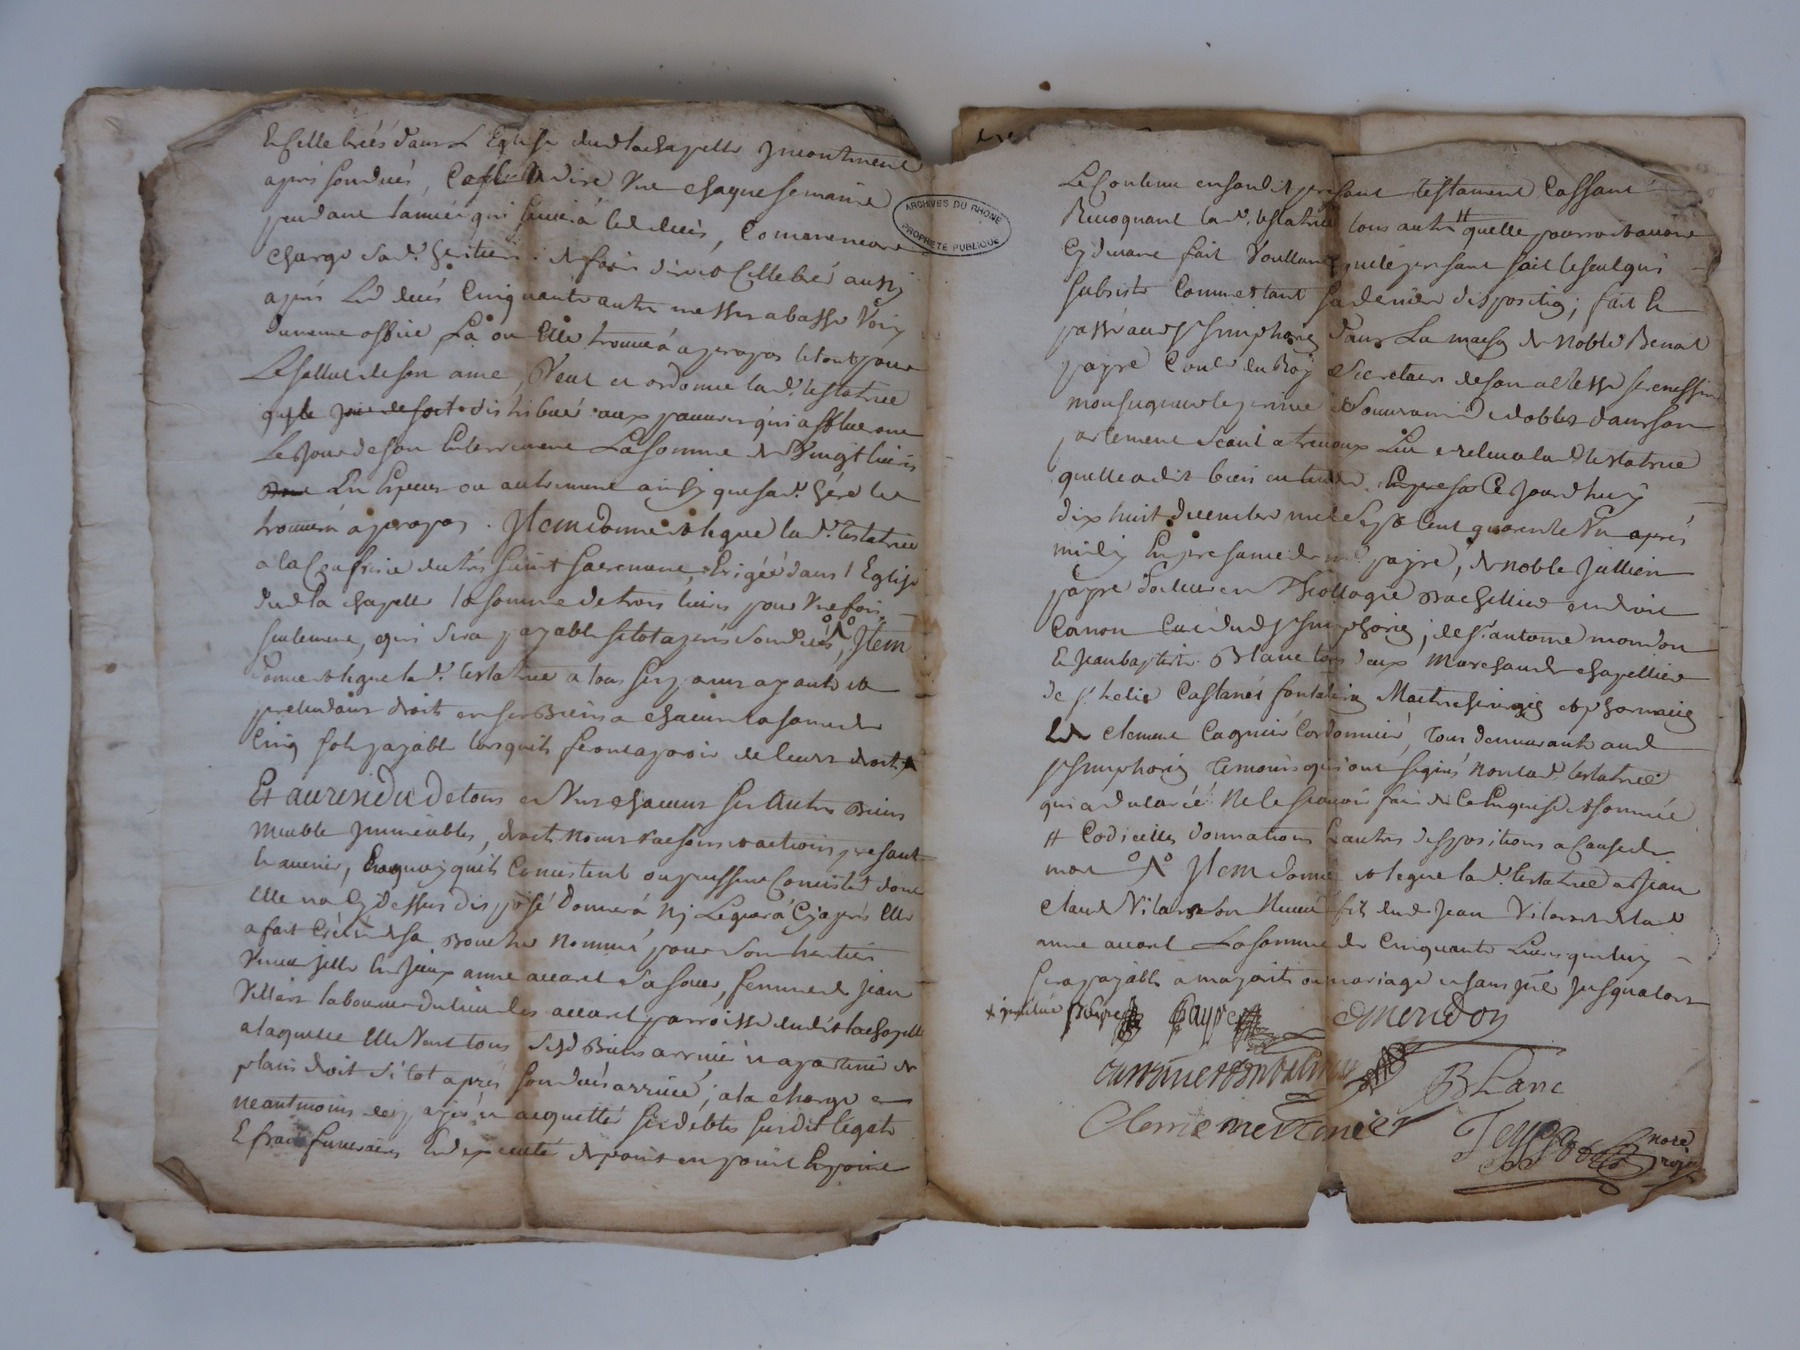 Celebrés dans L Eglise dud la chapelle Jncontinent
apres son decés, Cest a dire Une chaque semaine
pendant lannée qui suivra led decés, Comme encore
charge sad. heritiere de faire dire et Cellebré aussy
apres Led decés Cinquante autres messes a basse Voix
du meme office La ou Elle trouvera apropos le tout pour
Le sallut de son ame, Veut et ordonne lad. testatrice
qu'il distribué aux pauvres qui afflueront
Le Jour de son Enterrement La somme de Vingt livres
En Especes ou autrement ainsy que sad. here les
trouvera apropos. Jtem donne et legue lad. testatrice
a la Confrerie du très saint sacrement, Erigée dans l Eglise
dud la chapelle la somme de trois livres pour Une fois
seulement, qui sera payable sitot apres son decés, Jtem
donne et legue lad. testatrice a tous ses parents ayants et
pretendants droit en ses Biens a chacun la somme de
Cinq sols payable lorsquils feront aparoir de leurs droits
Et au residu de tous et Uns chacuns ses autres Biens
meuble Jmmeubles, droits noms raisons et actions presant
et avenir, En quoy quils Consistent ou puissent Consister dont
Elle na Cy dessus disposé donnera ny Leguera Cy apres Elle
a fait Créé de sa Bouche nommé pour son heritier
Universelle anne accarel sa soeur, femme de Jean
Villars laboureur du lieu des accarel parroisse dudit la chapelle
a laquelle Elle Veut tous sesd Biens arriver et apartenir de
plain droit sitot apres son decés arrivé; a la charge
neantmoins de payer et acquitter ses debtes susdit legats
Et frais funeraires Et dexecuter de point en point
ARCHIVES DU RHONE
PROPRIÉTÉ PUBLIQUE
Le Contenu en sondit presant testament Cassant
Revoquant lad. testatrice tous autres quelle pourroit avoir
Cy devant fait Voullant que le presant soit le seul qui
subsiste Comme etant sa derniere disposition; fait et
passé aud St Simphorien dans La maison de Noble Benoit
payre Cons.er du Roy secretaire de son altesse serenissime
monseigneur le prince souverain de dombes dans son
parlement seant a trevoux Lu et relu a lad testatrice
quelle a dit bien entendre Ce Jourdhuy
dix huit decembre mil sept cent quarente Un apres
midy En presance dud payre, de noble Jullien
payre docteur en Theologie Bachellier en droit
Canon Curé dud St Simphorien; de Sr antoine mondon
Et Jean baptiste Blanc tous deux marchands chapelliers
de Sr Castanet fontaliran Maitre chirurgien et
Et Clemant Cagnier Cordonnier, tous demeurants aud
St Simphorien Temoins qui ont signés non lad. testatrice
qui a declaré ne le scavoir faire de Ce Enquise et sommée
# Codicilles donnations Et autres dispositions a Cause de
mort Jtem donne et legue lad. testatrice a Jean
Claude Vilars son Neveu fils dud Jean Vilars et de lad
anne accarel La somme de Cinquante Livres qui luy
sera payable a majorité ou mariage et sans jusqualors
Payre Payre Mondon
Blanc
Clemant Canier
nore
royal